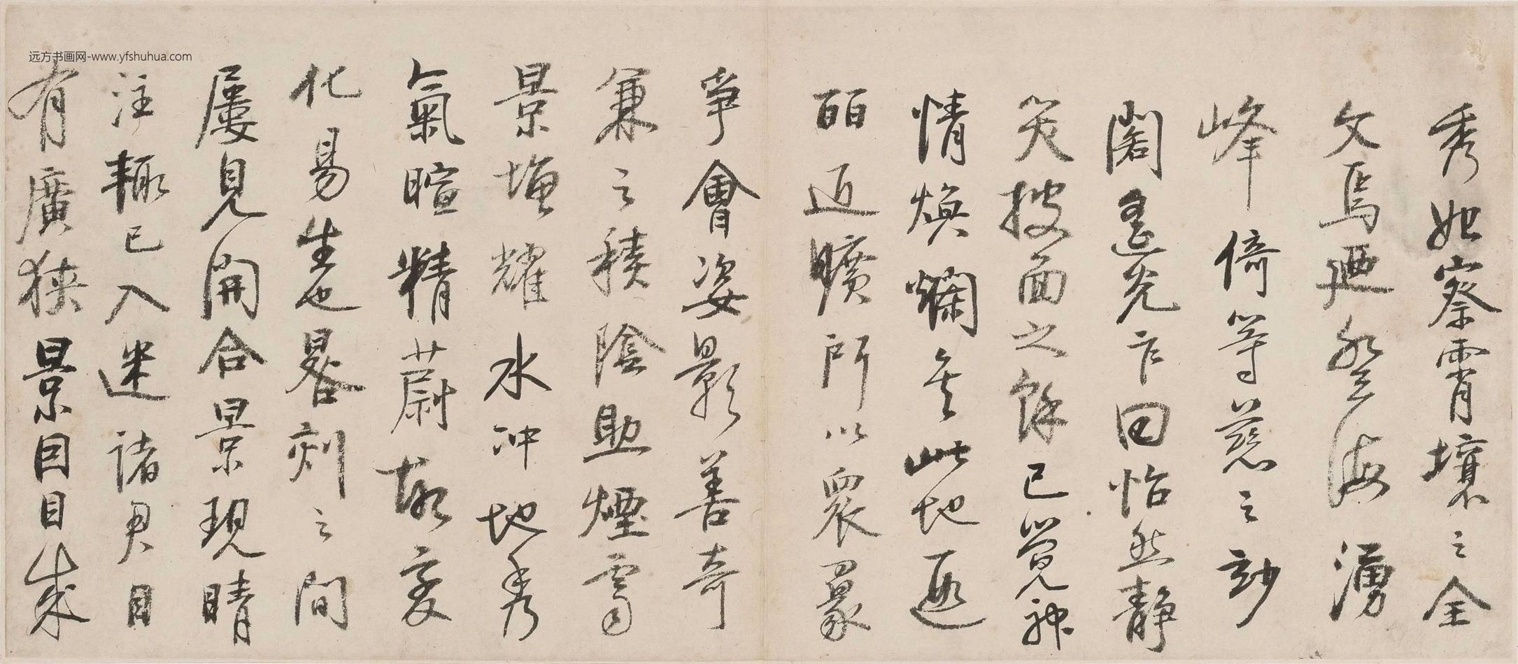 远方书画网-www.yfshuhua.com
秀如察霄壤之全
文焉迺登海湧
峰倚等慈之妙
閣遙光乍回怡然静
笑披面之餘已覺神
情煥爛矣此地遐
皕近曠所以衆景
争會姿影善奇
兼之積陰助煙雪
景墟耀水沖地秀
氣暄精蔚故変
化易生也晷刻之間
屢見開合景現晴
注輒已入迷諸君目
有廣狹景因目成